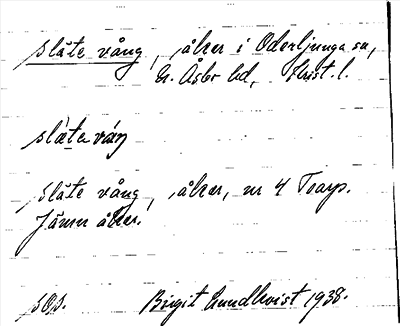 slåte vång, åker i Oderljunga sn,
N. Åsbo hd, Krist. l.
slåta váŋ
Slåte vång, åker, nr 4 Toarp.
Jämn åker.
sOs. Birgit Lundkvist 1938.